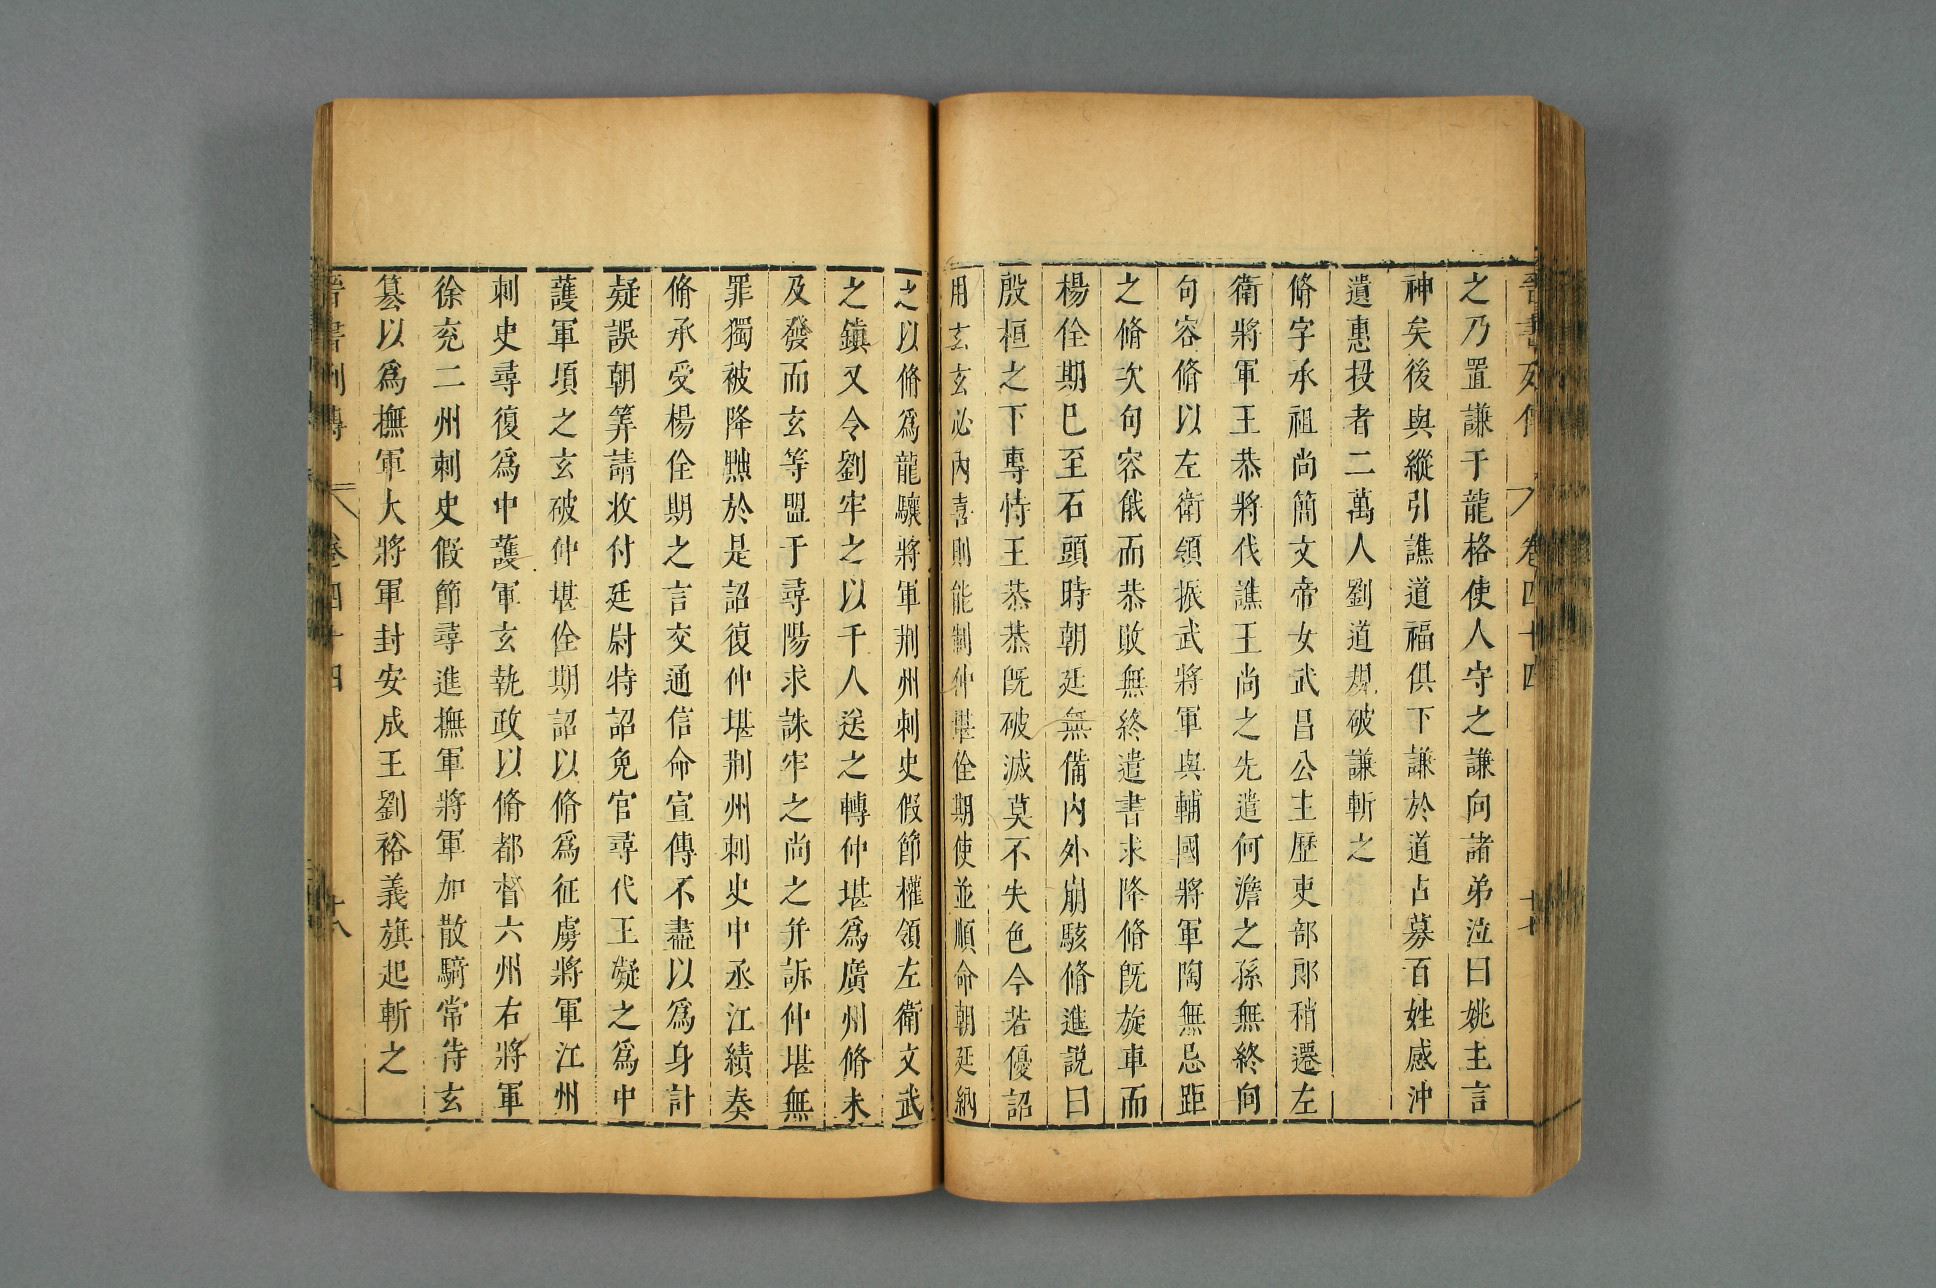 晉書列傳 卷四十四 十七
之乃置謙于龍格使人守之謙向諸弟泣曰姚主言
神矣後與縱引譙道福俱下謙於道占募百姓感沖
遺惠投者二萬人劉道規破謙斬之
脩字承祖尚簡文帝女武昌公主歷吏部郎稍遷左
衛將軍王恭將伐譙王尚之先遣何澹之孫無終向
句容脩以左衛領振武將軍與輔國將軍陶無忌距
之脩次句容俄而恭敗無終遣書求降脩旣旋車而
楊佺期巳至石頭時朝廷無備內外崩駭脩進説曰
殷桓之下專恃王恭恭旣破滅莫不失色今若優詔
用玄玄必內喜則能制仲堪佺期使並順命朝廷納
之以脩爲龍驤將軍荆州刺史假節權領左衛文武
之鎮又令劉牢之以千人送之轉仲堪爲廣州脩未
及發而玄等盟于尋陽求誅牢之尚之并訴仲堪無
罪獨被降黜於是詔復仲堪荆州刺史中丞江績奏
脩承受楊佺期之言交通信命宣傳不盡以爲身計
疑誤朝筭請收付廷尉特詔免官尋代王凝之爲中
護軍頃之玄破仲堪佺期詔以脩爲征虜將軍江州
刺史尋復爲中護軍玄執政以脩都督六州右將軍
徐兖二州刺史假節尋進撫軍將軍加散騎常侍玄
篡以爲撫軍大將軍封安成王劉裕義旗起斬之
晉書列傳 卷四十四 十八